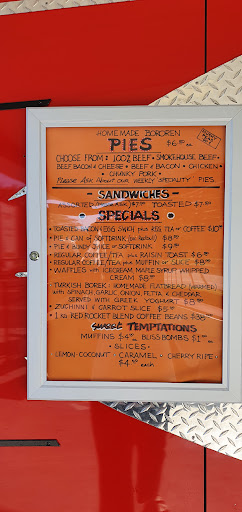 HOMEMADE BOROREN
PIES $6.50 EA.
CHOOSE FROM: 100% BEEF • SMOKEHOUSE BEEF •
BEEF BACON & CHEESE • BEEF & BACON • CHICKEN •
• CHUNKY PORK •
PLEASE ASK ABOUT OUR WEEKLY SPECIALITY PIES
- SANDWICHES -
ASSORTED $7.00 TOASTED $7.50
• SPECIALS •
• TOASTED BACON/EGG S/WICH plus REG TEA or COFFEE $10
• PIE & CAN of SOFTDRINK $8
• PIE & BUNDY JUICE or SOFTDRINK $9
• REGULAR COFFEE/TEA plus RAISIN TOAST $6
• REGULAR COFFEE/TEA plus MUFFIN or SLICE $8
• WAFFLES with ICECREAM MAPLE SYRUP WHIPPED
CREAM $8
• TURKISH BOREK: HOMEMADE FLATBREAD (WARMED)
with SPINACH, GARLIC ONION, FETTA & CHEDDAR,
SERVED with GREEK YOGHURT $8
• ZUCHINNI & CARROT SLICE $5
• 1 KG RED ROCKET BLEND COFFEE BEANS $38
sweet TEMPTATIONS
MUFFINS $4 BLISS BOMBS $1
• SLICES •
LEMON-COCONUT | CARAMEL or CHERRY RIPE
$4.50 each